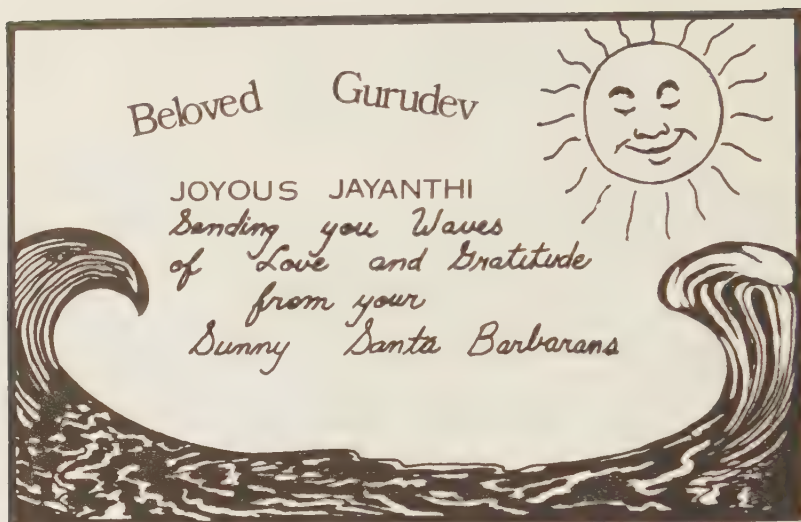 Beloved Gurudev
JOYOUS JAYANTHI
Sending you Waves
of Love and Gratitude
from your
Sunny Santa Barbarans